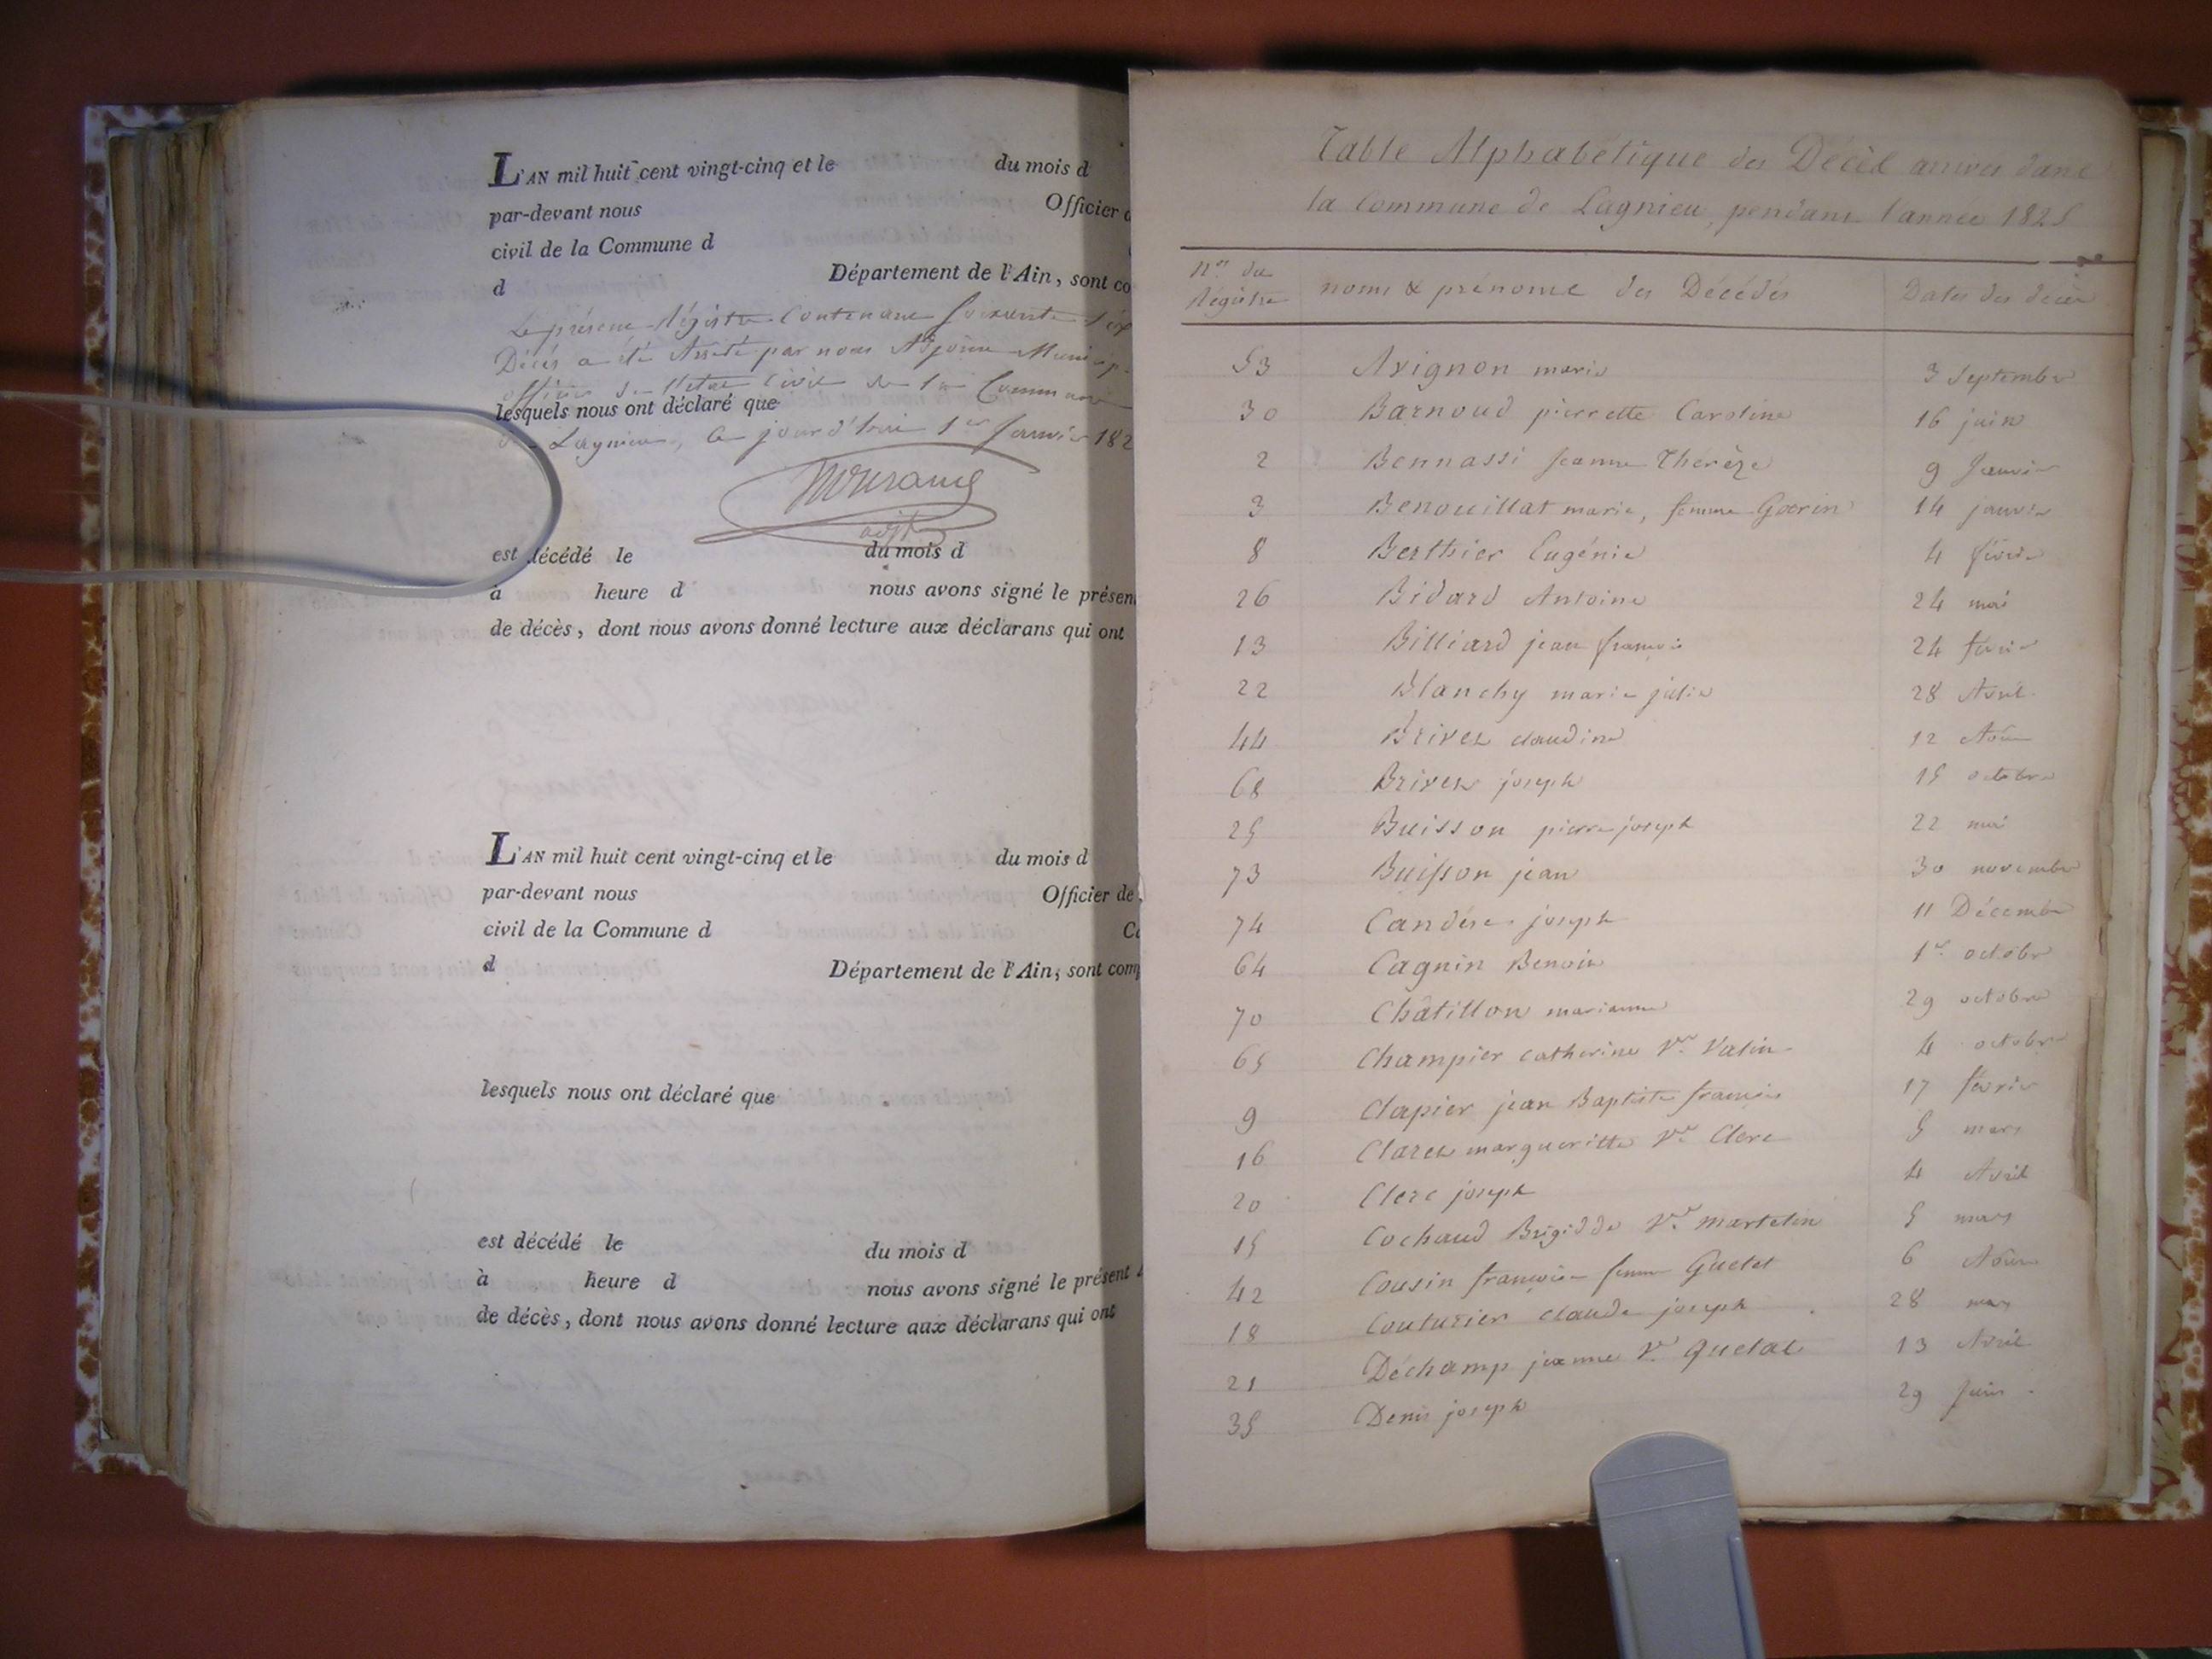 L'AN mil huit cent vingt-cinq et le du mois d
par-devant nous Officier d
civil de la Commune d
d Département de l'Ain, sont co
Le présent Régistre Contenant Soixante
Décès a été Arrêté par nous Adjoint Municip
officier de l'état Civil de la Commune
lesquels nous ont déclaré que
de Lagnieu, ce jourd'hui 1er Janvier 182
adjt
est décédé le du mois d
à heure d nous avons signé le présen
de décès, dont nous avons donné lecture aux déclarans qui ont
L'AN mil huit cent vingt-cinq et le du mois d
par-devant nous Officier de
civil de la Commune d C
d Département de l'Ain, sont com
lesquels nous ont déclaré que
est décédé le du mois d
à heure d nous avons signé le présent
de décès, dont nous avons donné lecture aux déclarans qui ont
Table Alphabétique des Décès arrivés dans
la Commune de Lagnieu, pendant l'année 1825
Nos du Régistre noms & prénoms des Décédés Dates des décès
53 Avignon marie 3 Septembre
30 Barnoud pierrette Caroline 16 juin
2 Bennassi Jeanne Thérèze 9 Janvier
3 Benouillat marie, femme Goorin 14 janvier
8 Berthier Eugénie 4 février
26 Bidard Antoine 24 mai
13 Billiard jean françois 24 février
22 Blanchy marie julie 28 Avril
44 Brivet claudine 12 Août
68 Brivet joseph 15 octobre
25 Buisson pierre joseph 22 mai
73 Buisson jean 30 novembre
74 Candése joseph 11 Décembre
64 Cagnin Benoit 1er octobre
70 Châtillon marianne 29 octobre
65 Champier catherine Ve Valin 4 octobre
9 Clapier jean Baptiste françois 17 février
16 Claret margueritte Ve Clerc 5 mars
20 Clerc joseph 4 Avril
15 Cochaud Brigidde Ve martelin 5 mars
42 Cousin françoise femme Guetet 6 Août
18 Couturier claude joseph 28 mars
21 Déchamp jeanne Ve Quetat 13 Avril
35 Denis joseph 29 Juin